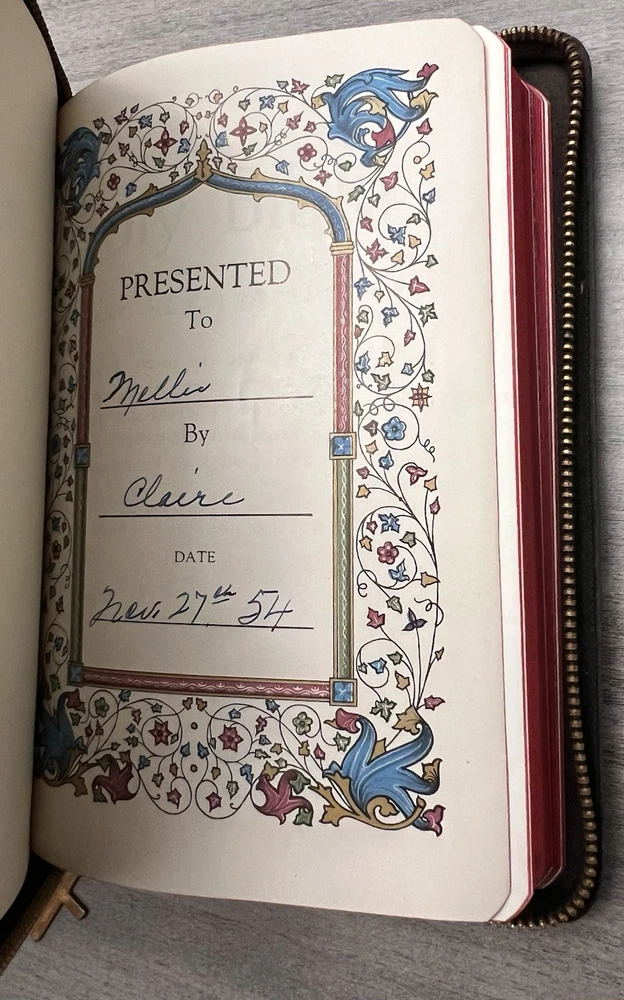 PRESENTED
To
Mellie
By
Claire
DATE
Nov. 27th 54